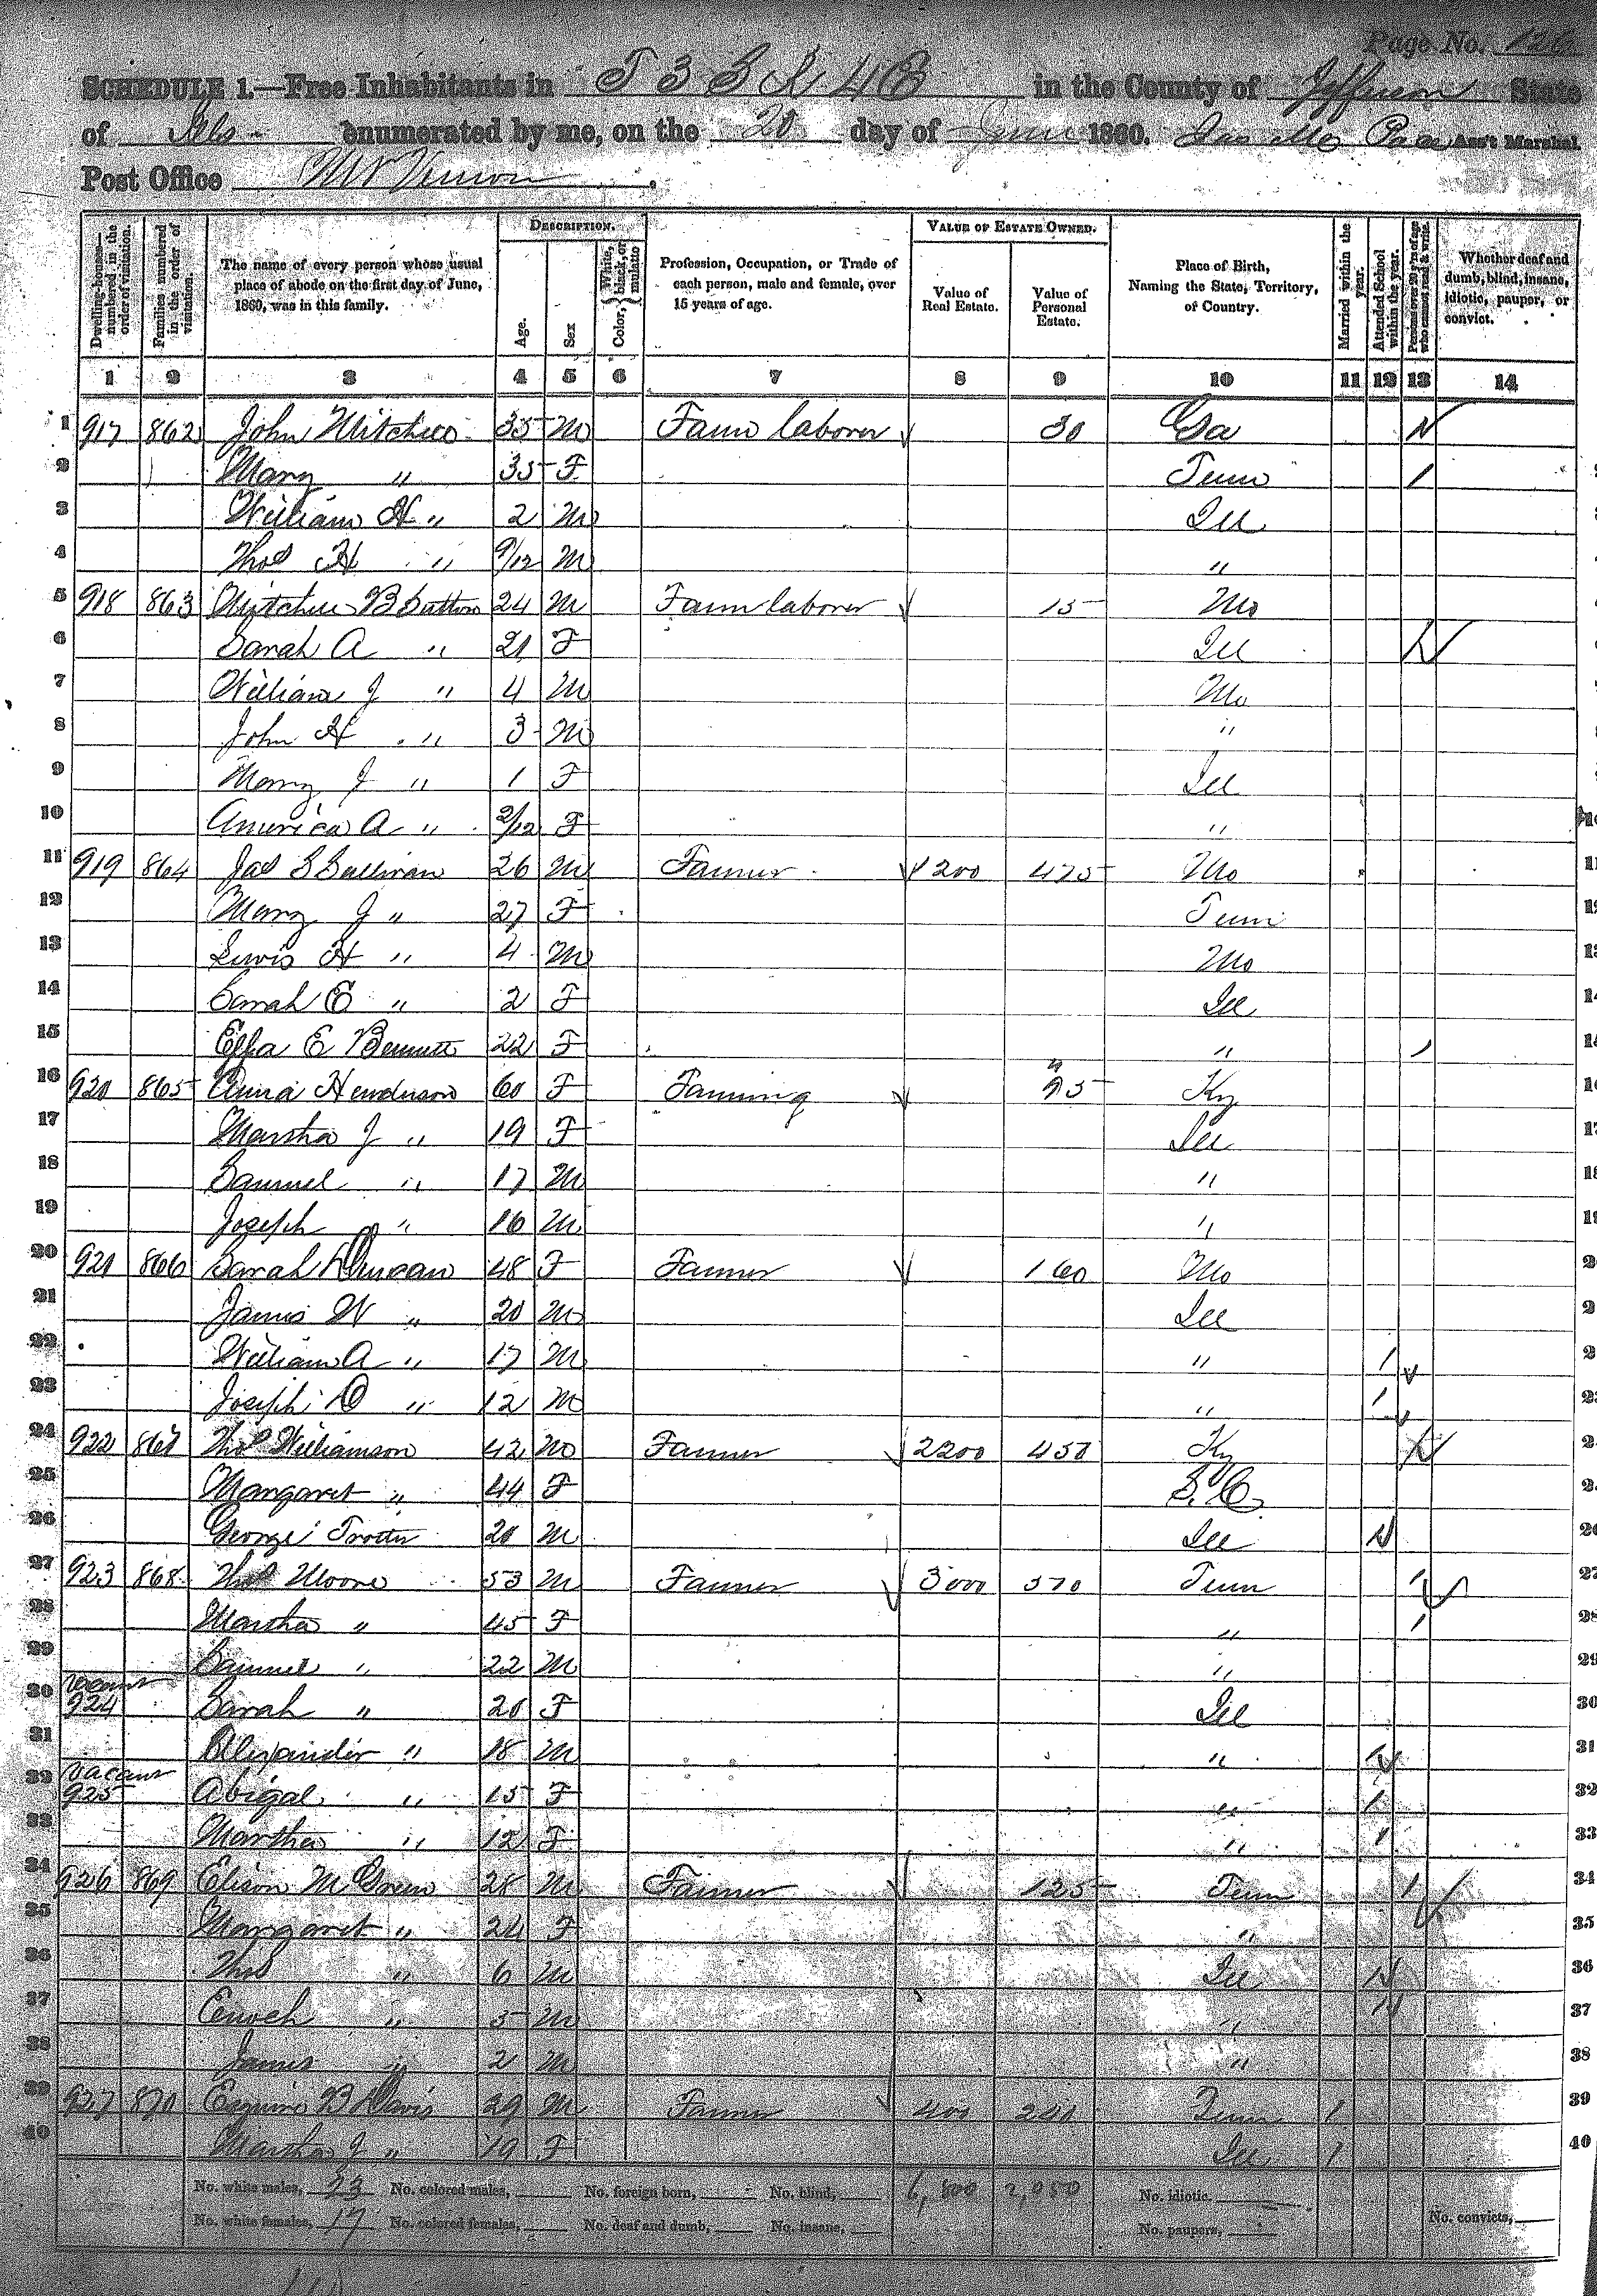 Page No. 126
SCHEDULE 1.—Free Inhabitants in T 3 S R 4 E in the County of Jefferson State
of Ills enumerated by me, on the 20 day of June 1860. Jas Pace Ass't Marshal.
Post Office Mt Vernon.
Dwelling-houses—numbered in the order of visitation.
Families numbered in the order of visitation.
The name of every person whose usual place of abode on the first day of June, 1860, was in this family.
DESCRIPTION.
Age.
Sex
Color, White, black, or mulatto
Profession, Occupation, or Trade of each person, male and female, over 15 years of age.
VALUE OF ESTATE OWNED.
Value of Real Estate.
Value of Personal Estate.
Place of Birth, Naming the State, Territory, or Country.
Married within the year.
Attended School within the year.
Persons over 20 y'rs of age who cannot read & write.
Whether deaf and dumb, blind, insane, idiotic, pauper, or convict.
1 2 3 4 5 6 7 8 9 10 11 12 13 14
1 917 862 John 35 M Farm laborer 30 Ga
2 Mary " 35 F Tenn 1 2
3 William H " 2 M Ill 3
4 Thos H " 9/12 M "
5 918 863 B Sutton 24 M Farm laborer 15 Mo
6 Sarah A " 21 F Ill
7 William J " 4 M Mo
8 John H " 3 M "
9 Mary J " 1 F Ill
10 America A " 2/12 F " 10
11 919 864 Jas S Sullivan 26 M Farmer 1200 475 Mo 11
12 Mary J " 27 F Tenn 12
13 Lewis H " 4 M Mo 13
14 Sarah E " 2 F Ill 14
15 Effa E Bennett 22 F " 1 15
16 920 865 Anna Henderson 60 F Farming Ky 16
17 Martha J " 19 F Ill 17
18 Samuel " 17 M " 18
19 Joseph " 16 M " 19
20 921 866 Sarah Duncan 48 F Farmer 160 Mo 2
21 James W " 20 M Ill 2
22 William A " 17 M " 1 2
23 Joseph D " 12 M " 1 2
24 922 867 Thos Williamson 42 M Farmer 2200 450 Ky 2
25 Margaret " 44 F S.C. 2
26 George Trotter 20 M Ill 26
27 923 868 Thos Moore 53 M Farmer 3000 370 Tenn 1 27
28 Martha " 45 F " 1 28
29 Samuel " 22 M " 29
30 Vacant 924 Sarah " 20 F Ill 30
31 Alexander " 18 M " 1 31
32 Vacant 925 Abigal " 15 F " 1 32
33 Martha " 12 F " 1 33
34 926 869 Elison M Green 28 M Farmer 125 Tenn 1 34
35 Margaret " 24 F " 35
36 Thos " 6 M Ill 1 36
37 Enoch " 5 M " 1 37
38 James " 2 M " 38
39 927 870 Esquire B Davis 29 M Farmer 400 200 Tenn 1 39
40 Martha J " 19 F Ill 1 40
No. white males, 23 No. colored males, No. foreign born, No. blind, 6,800 2,050 No. idiotic,
No. white females, 17 No. colored females, No. deaf and dumb, No. insane, No. paupers, No. convicts,